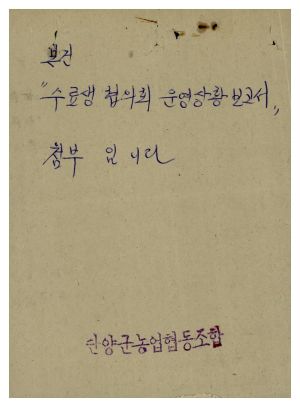 본건
"수료생 협의회 운영상황 보고서"
첨부 입니다
단양군농업협동조합